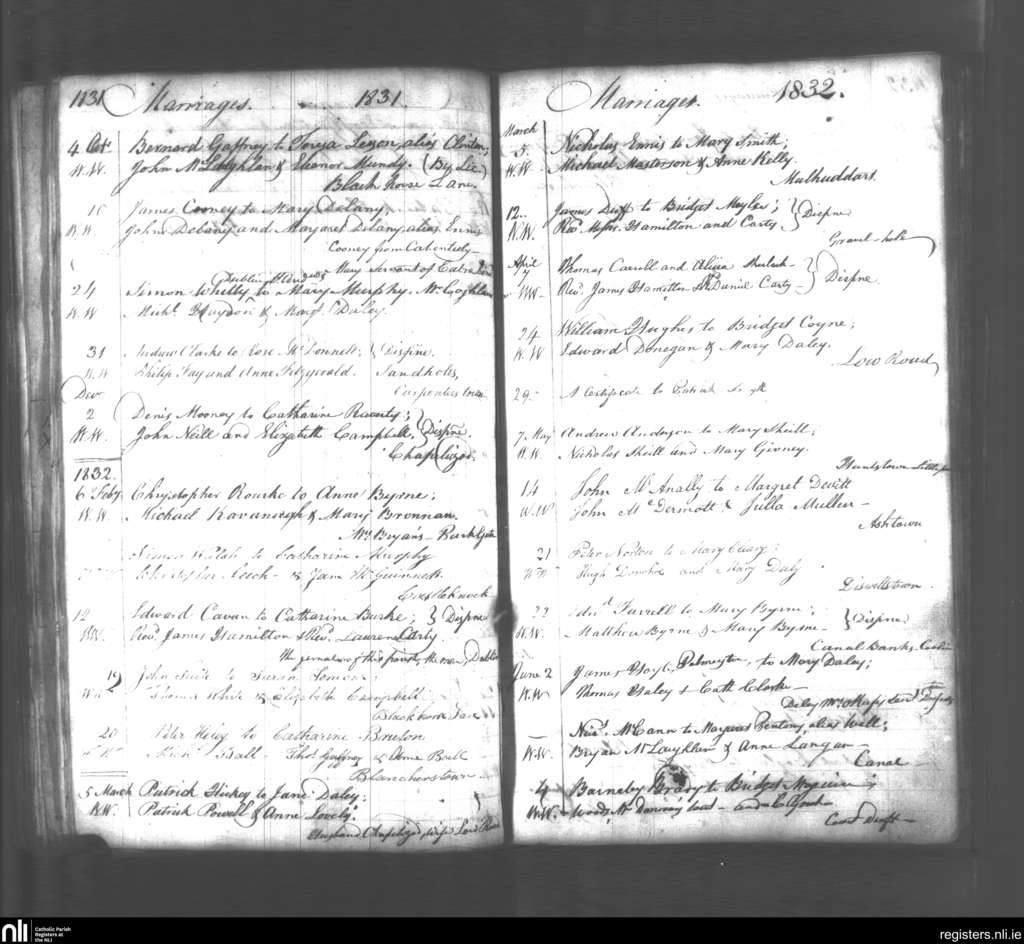 1831 Marriages. 1831.
4 Oct Bernard Gaffney to Teresa Leeson, alias Clinton,
W.W. John McLoughlan & Eleanor Mundy. (By Lic)
Black horse Lane
10 James Cooney to Mary Delany,
W.W. John Delany and Margaret Delany, alias Ennis
Cooney from Cabenteely
Mary Servant of Cabra
Dublin St Andrews
24 Simon Whitty to Mary Murphy, McCoghlan
W.W. Michl. Haydon & Margt. Daley.
31 Andrew Clarke to Rose McDonnell; Dispne.
W.W. Philip Fay and Anne Fitzgerald. Sandholes,
Carpenters town
Decr.
2 Denis Mooney to Catharine Raverty;
W.W. John Neill and Elizabeth Campbell. Dispne.
Chapelizod.
1832.
6 Feby Christopher Rourke to Anne Byrne;
W.W. Michael Kavanagh & Mary Brennan.
Mrs Bryan's - Park Gate
Simon Walsh to Catharine Murphy
Christopher Leech - & Jane McGuinness.
Castleknock
12 Edward Cavan to Catharine Burke; Dispne
W.W. Revd. James Hamilton & Revd. Laurence Carty
the female of this parish, the man, Dublin
19 John to
W.W. Thomas White & Elizabeth Campbell
Blackhorse Lane
20 Peter to Catharine
W.W. Ball - Thos. Gaffney & Anne Ball
Blanchardstown
5 March Patrick Hickey to Jane Daley;
W.W. Patrick Powell & Anne Lovely.
Husband Chapelizod, wife Low Road
Marriages. 1832.
March
5. Nicholas Ennis to Mary Smith;
W.W. Michael Masterson & Anne Kelly.
Mulhuddart.
12. James Duff to Bridget Meyler; Dispne
W.W. Revd. Messrs. Hamilton and Carty.
Gravel-hole
April
7 Thomas Carroll and Alicia Sherlock - Dispne.
W.W. Revd. James Hamilton & Daniel Carty -
24 William Hughes to Bridget Coyne;
W.W. Edward Donegan & Mary Daley.
Low Road
29 - A Certificate to Patrick
7 May Andrew Anderson to Mary Sheill;
W.W. Nicholas Sheill and Mary Givney.
Huntstown
14 John McAnally to Margret Devitt
W.W. John McDermott & Julia Mullen -
Ashtown
21 Peter Norton to Mary Cleary;
W.W. Hugh Donohoe and Mary Daly
Diswellstown
22 Edwd. Farrell to Mary Byrne; Dispne
W.W. Matthew Byrne & Mary Byrne -
Canal Banks,
June 2 James Hoyle, Palmerstown, to Mary Daley;
W.W. Thomas Haley & Cath Clarke -
Daley Dispne
McCann to Margaret alias Wall;
W.W. Bryan McLaughlan & Anne Langan -
Canal -
4 Barnaby Brady to Bridget Meguire;
W.W. -